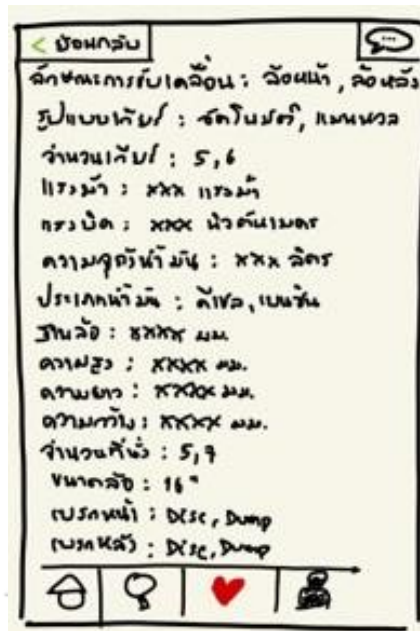 < ย้อนกลับ
ลักษณะการขับเคลื่อน : ล้อหน้า, ล้อหลัง
รูปแบบเกียร์ : อัตโนมัติ, แมนนวล
จำนวนเกียร์ : 5,6
แรงม้า : xxx แรงม้า
แรงบิด : xxx นิวตันเมตร
ความจุถังน้ำมัน : xxx ลิตร
ประเภทน้ำมัน : ดีเซล, เบนซิน
ฐานล้อ : xxxx มม.
ความสูง : xxxx มม.
ความยาว : xxxx มม.
ความกว้าง : xxxx มม.
จำนวนที่นั่ง : 5,7
ขนาดล้อ : 16"
เบรกหน้า : Disc, Dump
เบรกหลัง : Disc, Dump